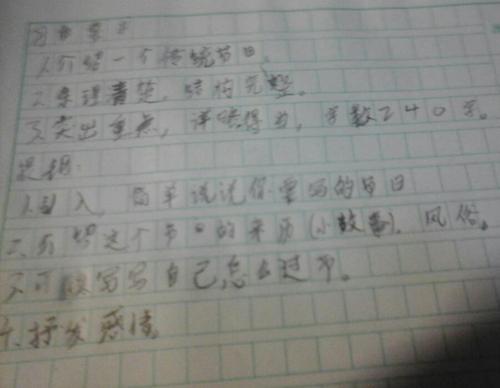 习作要求
1.介绍一个传统节日。
2.条理清楚,结构完整。
3.突出重点,详略得当,字数240字。
提纲:
1.引入,简单说说你要写的节日
2.介绍这个节日的来历(小故事),风俗。
3.可以写写自己怎么过节。
4.抒发感情。